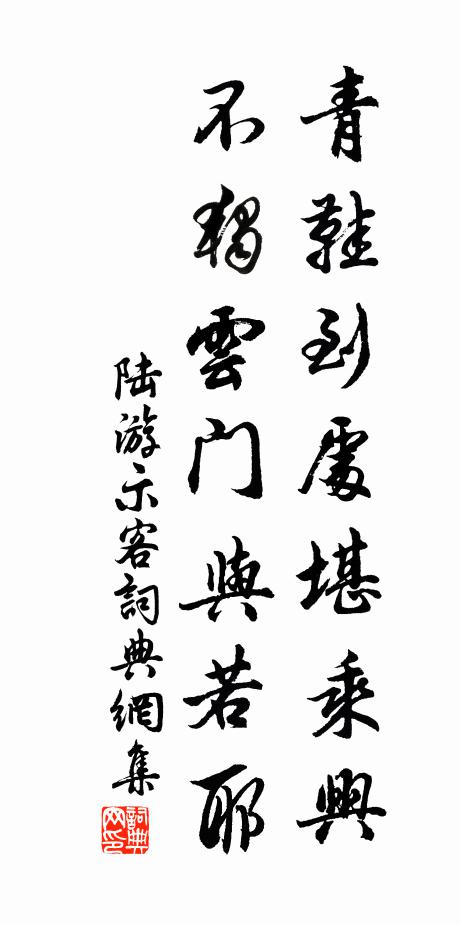 青鞵到處堪乘興
不獨雲门與若耶
陆游示客詞典網集
詞典网印